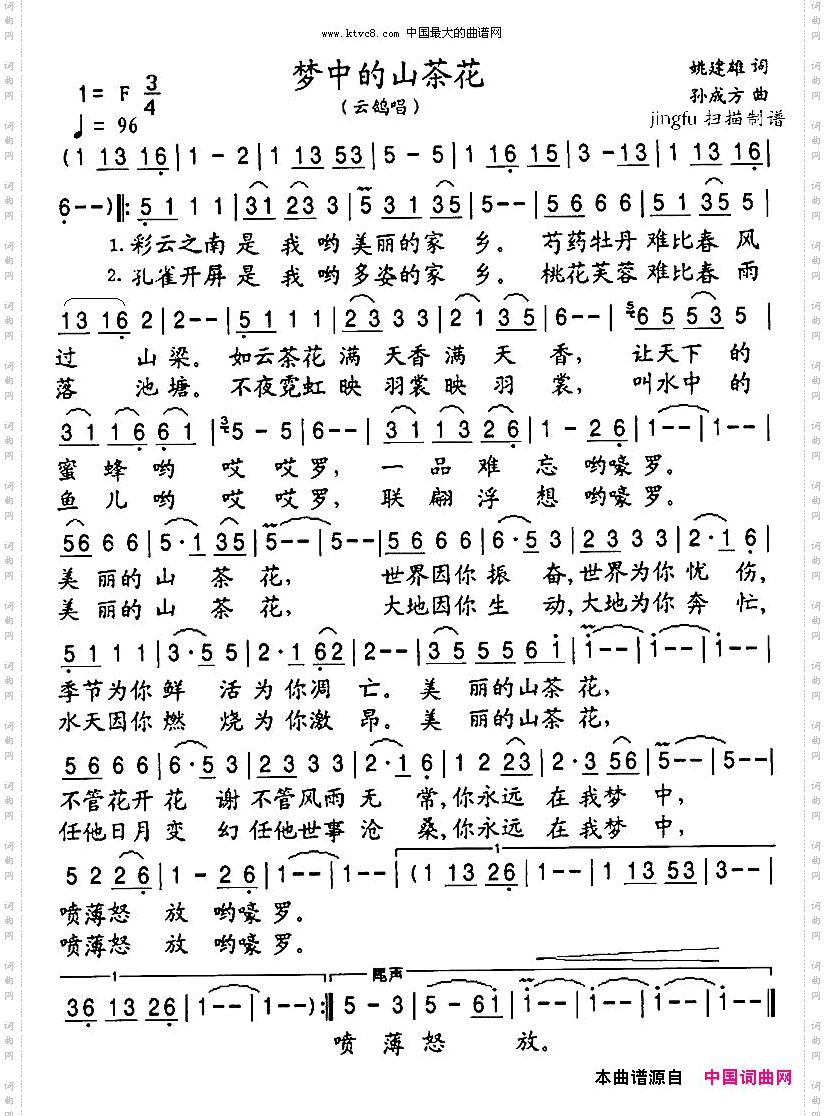 www.ktvc8.com 中国最大的曲谱网
梦中的山茶花
(云鸽唱)
姚建雄 词
孙成方 曲
jingfu 扫描制谱
1= F 3/4
♩= 96
(1 13 16|1 - 2|1 13 53|5 - 5|1 16 15|3 -13|1 13 16|
6--)‖:5 1 1 1|31 23 3|5 3 1 35|5--|5 6 6 6|5 1 35 5|
1.彩云之南 是 我 哟 美丽的家 乡。 芍药牡丹 难比春 风
2.孔雀开屏 是 我 哟 多姿的家 乡。 桃花芙蓉 难比春 雨
13 16 2|2--|5 1 1 1|2 3 3 3|2 1 35|6--|6 5 5 3 5|
过 山 梁。 如云茶花 满 天香 满 天 香, 让天下 的
落 池 塘。 不夜霓虹 映 羽裳 映 羽 裳, 叫水中 的
31 16 61|5 - 5|6--|31 13 26|1 - 26|1--|1--|
蜜 蜂 哟 哎 哎罗, 一 品 难 忘 哟嚎罗。
鱼 儿 哟 哎 哎罗, 联 翩 浮 想 哟嚎罗。
56 6 6|5·1 35|5--|5--|5 6 6 6|6·5 3|2 3 3 3|2·1 6|
美 丽的 山 茶 花, 世界因你 振 奋,世界为你 忧 伤,
美 丽的 山 茶 花, 大地因你 生 动,大地为你 奔 忙,
5 1 1 1|3·5 5|2·1 62|2--|3 5 5 5 6 1|1--|1--|
季节为你 鲜 活 为 你凋 亡。 美 丽的山茶 花,
水天因你 燃 烧 为 你激 昂。 美 丽的山茶 花,
5 6 6 6|6·5 3|2 3 3 3|2·1 6|1 2 23|2·3 56|5--|5--|
不管花开 花 谢 不管风雨 无 常,你永远 在 我梦 中,
任他日月 变 幻 任他世事 沧 桑,你永远 在 我梦 中,
1
5 2 26|1 - 26|1--|1--|(1 13 26|1 13 53|3--|
喷薄怒 放 哟嚎 罗。
喷薄怒 放 哟嚎 罗。
1 尾声
36 13 26|1--|1--):‖5 - 3|5 - 61|1--|1--|1--‖
喷 薄 怒 放。
本曲谱源自 中国词曲网